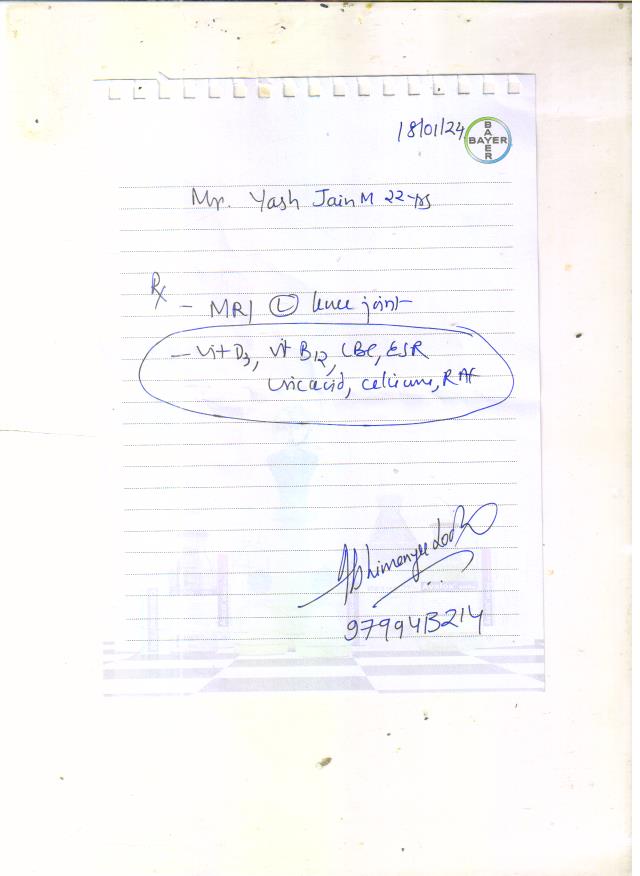 18/01/24
BAYER
BAYER
Mr. Yash Jain M 22 yrs
Rx
- MRI (L) knee joint
- Vit D3, Vit B12, CBC, ESR
Uric acid, Calcium, RAF
Abhimanyu